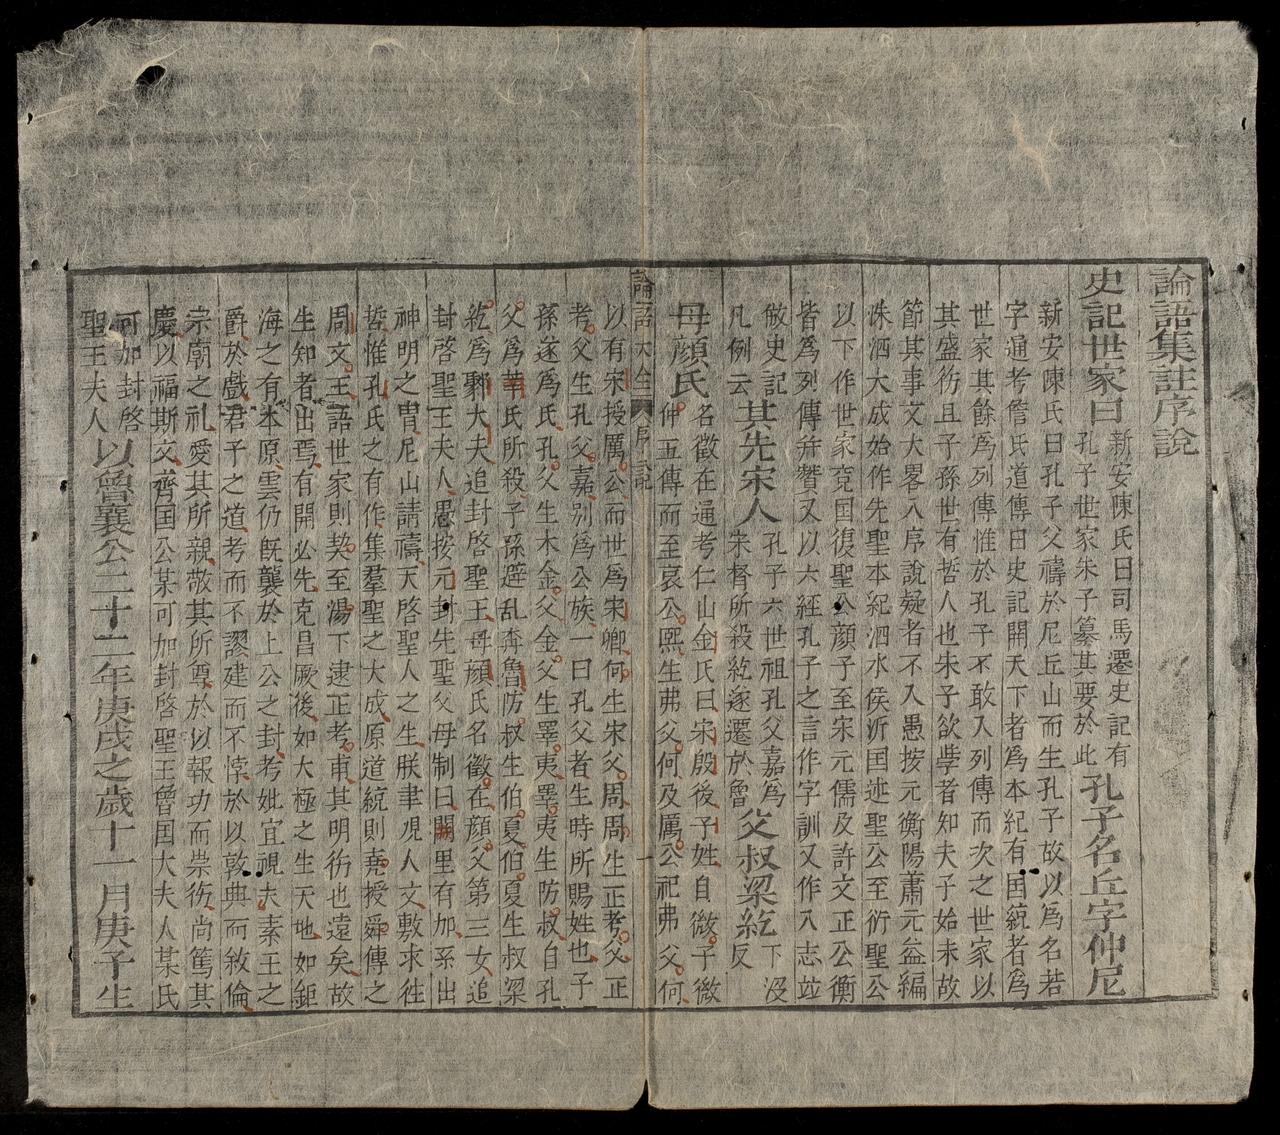 論語集註序說
史記世家曰新安陳氏曰司馬遷史記有孔子世家朱子纂其要於此孔子名丘字仲尼
新安陳氏曰孔子父禱於尼丘山而生孔子故以為名若
字通考詹氏道傳曰史記開天下者為本紀有国統者為
世家其餘為列傳惟於孔子不敢入列傳而次之世家以
其盛德且子孫世有哲人也朱子欲學者知夫子始末故
節其事文大畧入序說疑者不入愚按元衡陽蕭元益編
洙泗大成始作先聖本紀泗水侯沂国述聖公至衍聖公
以下作世家兗国復聖公顔子至宋元儒及許文正公衡
皆為列傳并贊又以六經孔子之言作字訓又作入志竝
倣史記凡例云其先宋人孔子六世祖孔父嘉為宋督所殺紇遂遷於魯父叔梁紇下没反
母顔氏名徵在通考仁山金氏曰宋殷後子姓自微子微仲五傳而至哀公熙生弗父何及厲公祀弗父何
論語大全 序說 一
以有宋授厲公而世為宋卿何生宋父周周生正考父正
考父生孔父嘉別為公族一曰孔父者生時所賜姓也子
孫遂為氏孔父生木金父金父生睪夷睪夷生防叔自孔
父為華氏所殺子孫避乱奔魯防叔生伯夏伯夏生叔梁
紇為郰大夫追封啓聖王母顔氏名徵在顔父第三女追
封啓聖王夫人愚按元封先聖父母制曰闕里有加系出
神明之胄尼山請禱天啓聖人之生朕聿覌人文敷求往
哲惟孔氏之有作集羣聖之大成原道統則堯授舜傳之
周文王語世家則契至湯下逮正考甫其明德也遠矣故
生知者出焉有開必先克昌厥後如大極之生天地如鉅
海之有本原雲仍既襲於上公之封考妣宜視夫素王之
爵於戲君子之道考而不謬建而不悖於以敦典而敘倫
宗廟之礼愛其所親敬其所尊於以報功而崇德尚篤其
慶以福斯文齊国公某可加封啓聖王魯国大夫人某氏
可加封啓聖王夫人以魯襄公二十二年庚戌之歲十一月庚子生